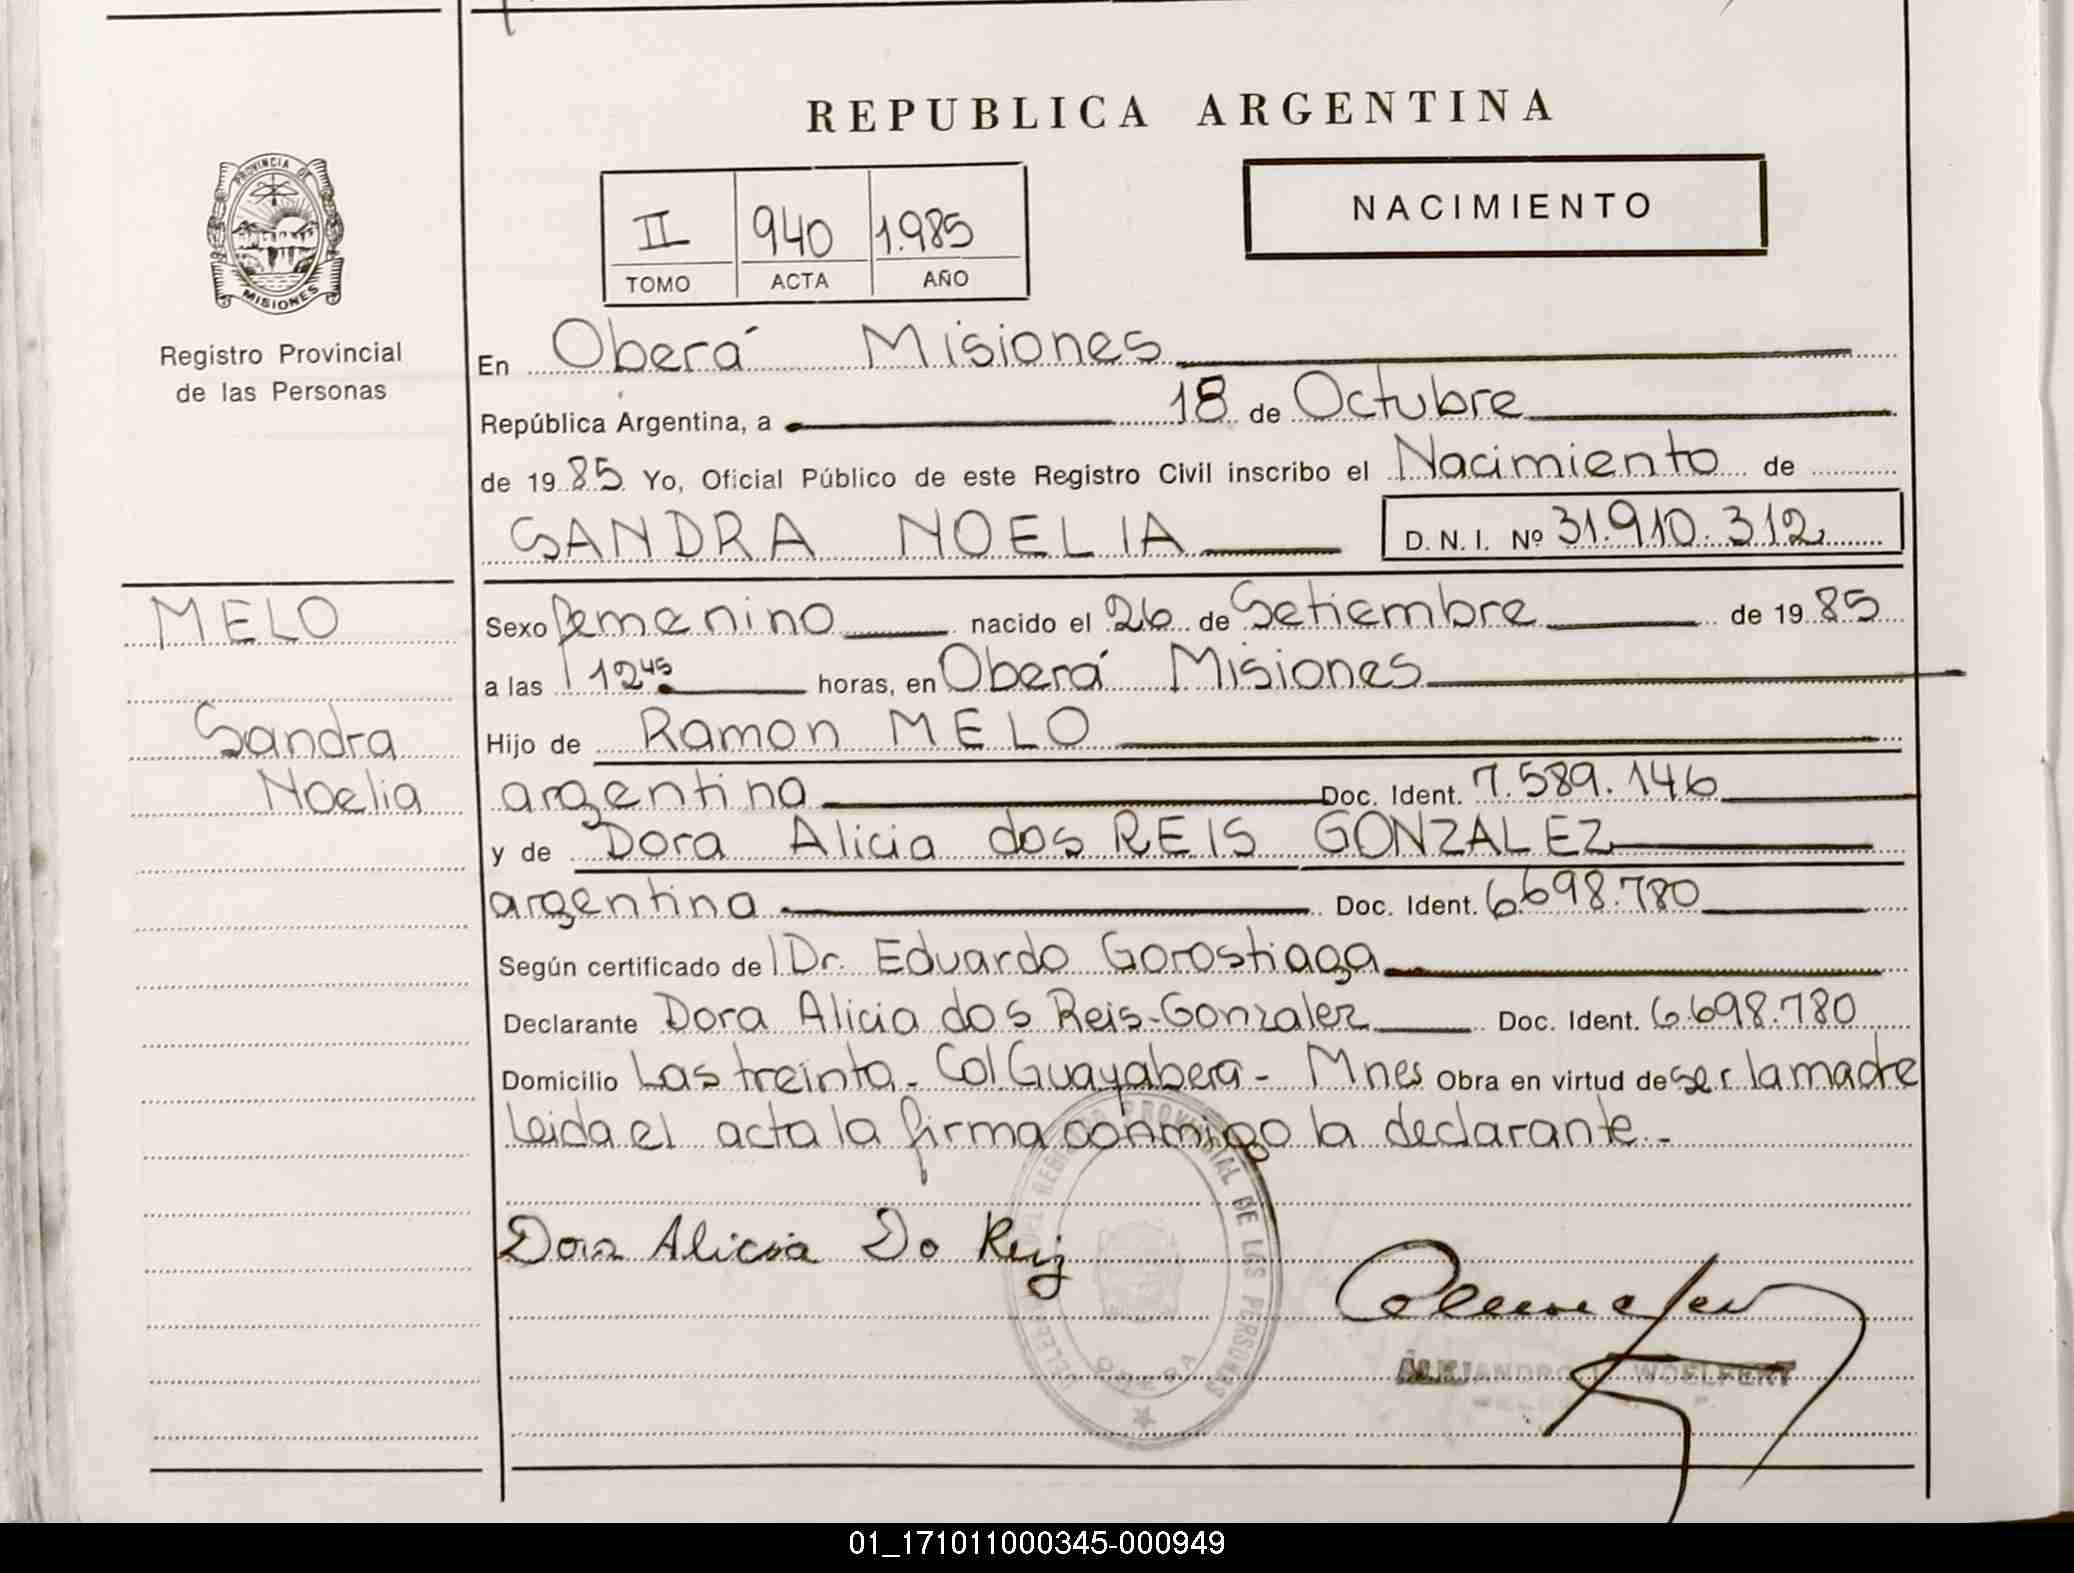 REPUBLICA ARGENTINA
PROVINCIA DE
MISIONES
Registro Provincial
de las Personas
II 940 1.985
TOMO ACTA AÑO
NACIMIENTO
En Oberá Misiones
República Argentina, a 18 de Octubre
de 1985 Yo, Oficial Público de este Registro Civil inscribo el Nacimiento de
SANDRA NOELIA D. N. I. Nº 31.910.312
MELO
Sandra
Noelia
Sexo femenino nacido el 26 de Setiembre de 1985
a las 12 45 horas, en Oberá Misiones
Hijo de Ramon MELO
argentina Doc. Ident. 7.589.146
y de Dora Alicia dos REIS GONZALEZ
argentina Doc. Ident. 6.698.780
Según certificado de Dr. Eduardo Gorostiaga
Declarante Dora Alicia dos Reis-Gonzalez Doc. Ident. 6.698.780
Domicilio Las treinta - Col Guayabera - Mnes Obra en virtud de ser la madre
Leida el acta la firma conmigo la declarante.-
REGISTRO PROVINCIAL DE LAS PERSONAS
OBERA
Dora Alicia Do Reiz
ALEJANDRO WOELFERT
01_171011000345-000949